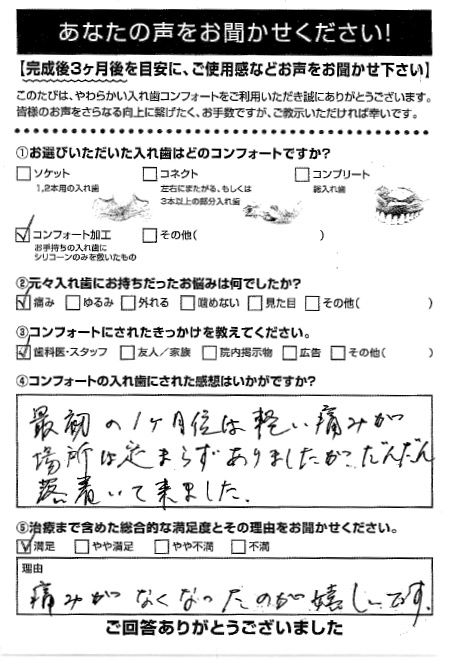 あなたの声をお聞かせください！
【完成後3ヶ月後を目安に、ご使用感などお声をお聞かせ下さい】
このたびは、やわらかい入れ歯コンフォートをご利用いただき誠にありがとうございます。
皆様のお声をさらなる向上に繋げたく、お手数ですが、ご教示いただければ幸いです。
①お選びいただいた入れ歯はどのコンフォートですか？
□ソケット □コネクト □コンプリート
1,2本用の入れ歯 左右にまたがる、もしくは 総入れ歯
3本以上の部分入れ歯
☑コンフォート加工 □その他（ ）
お手持ちの入れ歯に
シリコーンのみを敷いたもの
②元々入れ歯にお持ちだったお悩みは何でしたか？
☑痛み □ゆるみ □外れる □噛めない □見た目 □その他（ ）
③コンフォートにされたきっかけを教えてください。
☑歯科医・スタッフ □友人／家族 □院内掲示物 □広告 □その他（ ）
④コンフォートの入れ歯にされた感想はいかがですか？
最初の1ヶ月位は軽い痛みが
場所は定まらずありましたが、だんだん
落着いて来ました。
⑤治療まで含めた総合的な満足度とその理由をお聞かせください。
☑満足 □やや満足 □やや不満 □不満
理由
痛みがなくなったのが嬉しいです。
ご回答ありがとうございました